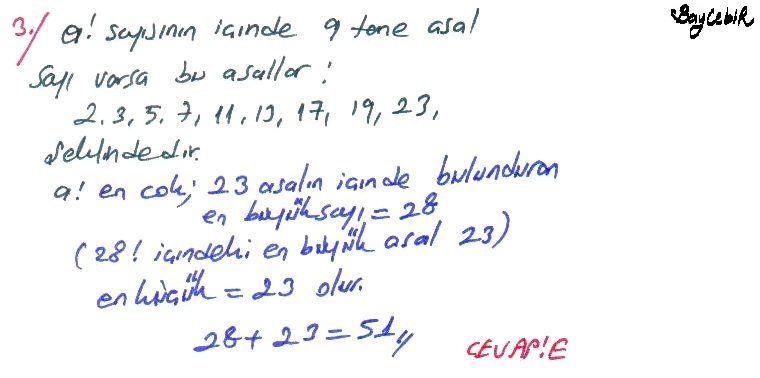 BayCebiR
3./ a! sayısının içinde 9 tane asal
sayı varsa bu asallar :
2, 3, 5, 7, 11, 13, 17, 19, 23,
şeklindedir.
a! en çok; 23 asalın içinde bulunduran
en büyük sayı = 28
(28! içindeki en büyük asal 23)
en küçük = 23 olur.
28 + 23 = 51,,
CEVAP: E